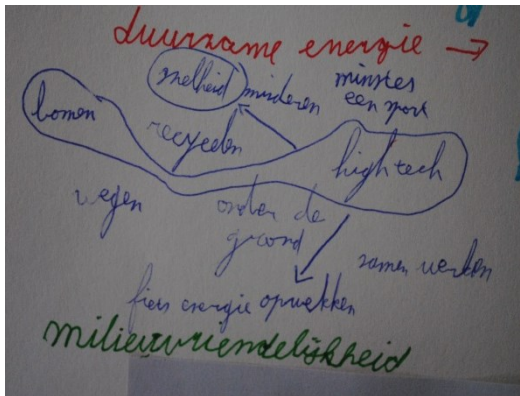 duurzame energie →
snelheid minderen
minstes
een spork
bomen
recyclen
high tech
wegen
onder de
grond
samen werken
fiets energie opwekken
milieuvriendelijkheid